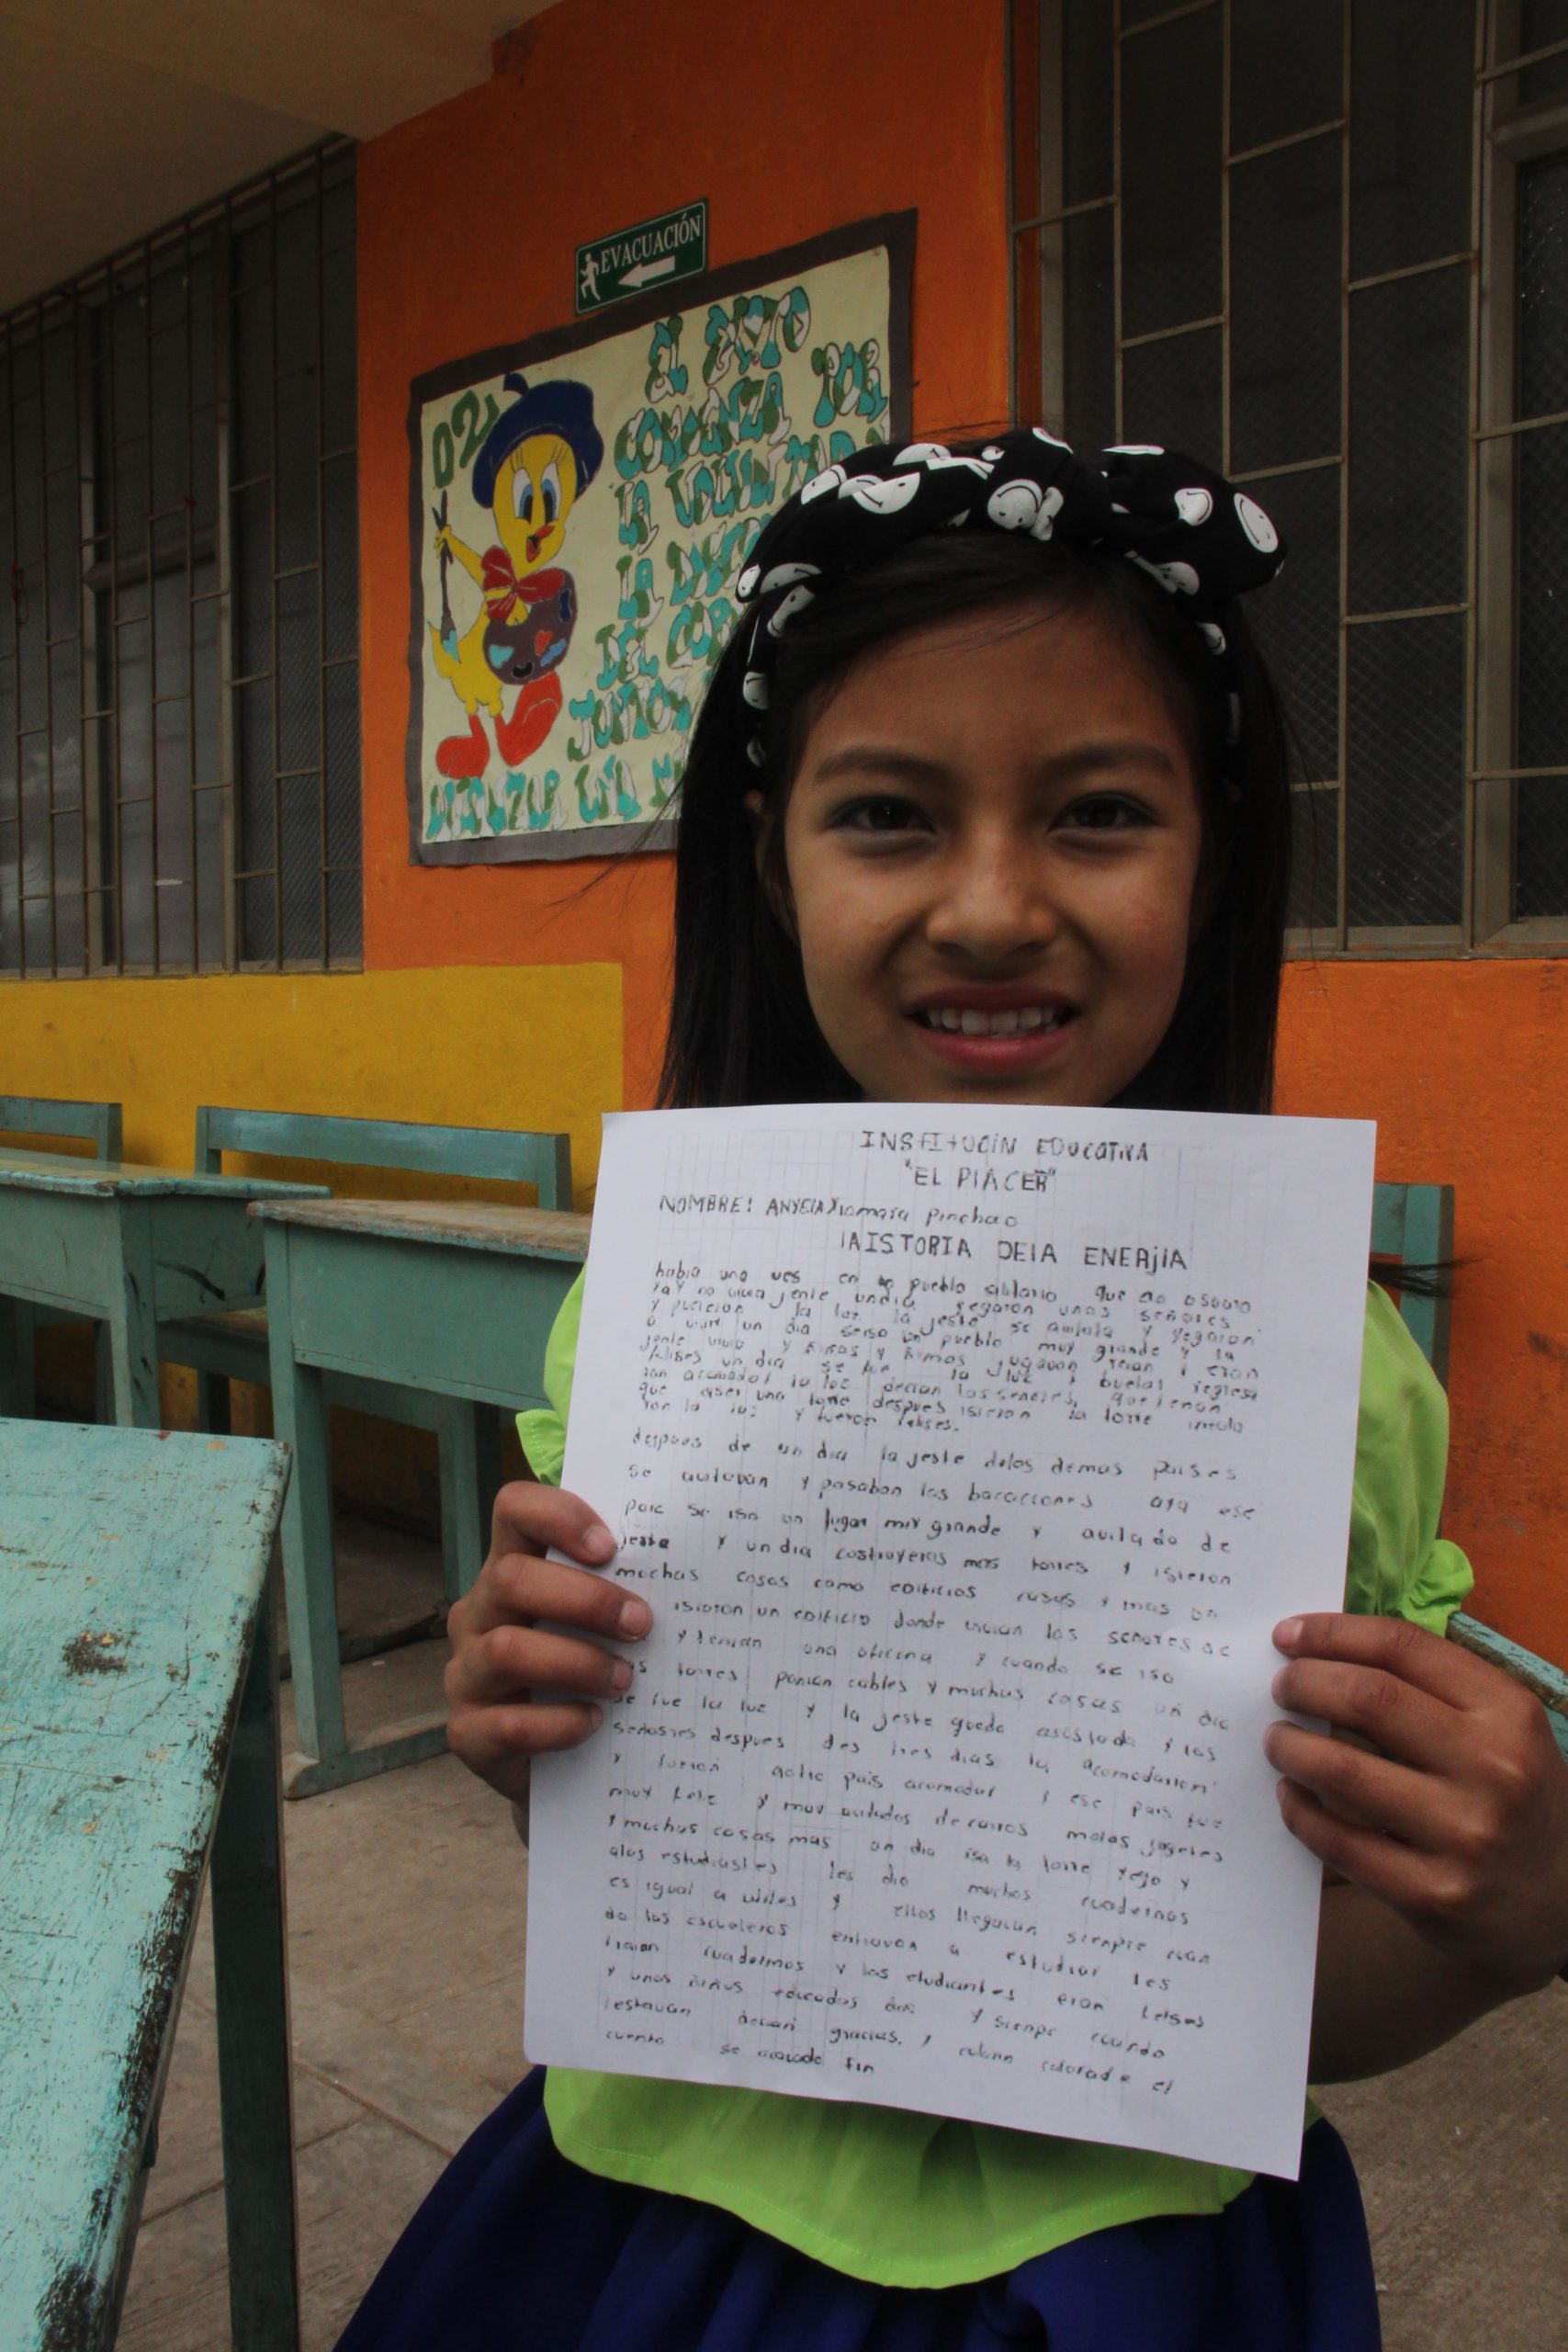 EVACUACIÓN
02
EL EXITO
COMIENZA POR
LA VOLUNTAD
LA
DEL
JUNTOS
UTILIZAR
INSTITUCIN EDUCATIVA
"EL PlACER"
NOMBRE: ANYElA Xiomara Pinchao
lAISTORIA DElA ENERjIA
habia una ves en un pueblo que era oscuro
y no vivia jente undia yegaron unos señores
y pusieron la luz la jeste se y yegaron
a vivir un dia seiso un pueblo muy grande y la
jente vivia y y jugavan reian i eran
felises un dia se fue la luz i
acomodar la luz decian los señores, que tenian
que aser una torre despues isieron la torre
con la luz y fueron felises.
despues de un dia la jeste delos demas paises
se y pasaban las bacaciones ese
pais se iso un lugar muy grande y de
jeste y undia costruyeros mas torres y isieron
muchas cosas como edificios casas y mas un
isieron un edificio donde vivian los señores de
y tenian una oficina y cuando se iso
torres ponian cables y muchas cosas un dia
se fue la luz y la jeste quedo y los
señosres despues des tres dias la acomodaron
y fueron aotro pais acomodar y ese pais fue
muy y muy de carros motos jogetes
y muchas cosas mas un dia isa la torre yego y
alos estudiastes les dio muchos cuadernos
es igual a utiles y ellos llegavan sienpre cuan
do los escueleros entravan a estudiar les
traian cuadernos y los etudiantes eran
y unos niños educados y sienpr cuando
decian gracias. y colorado el
cuento se acavado fin